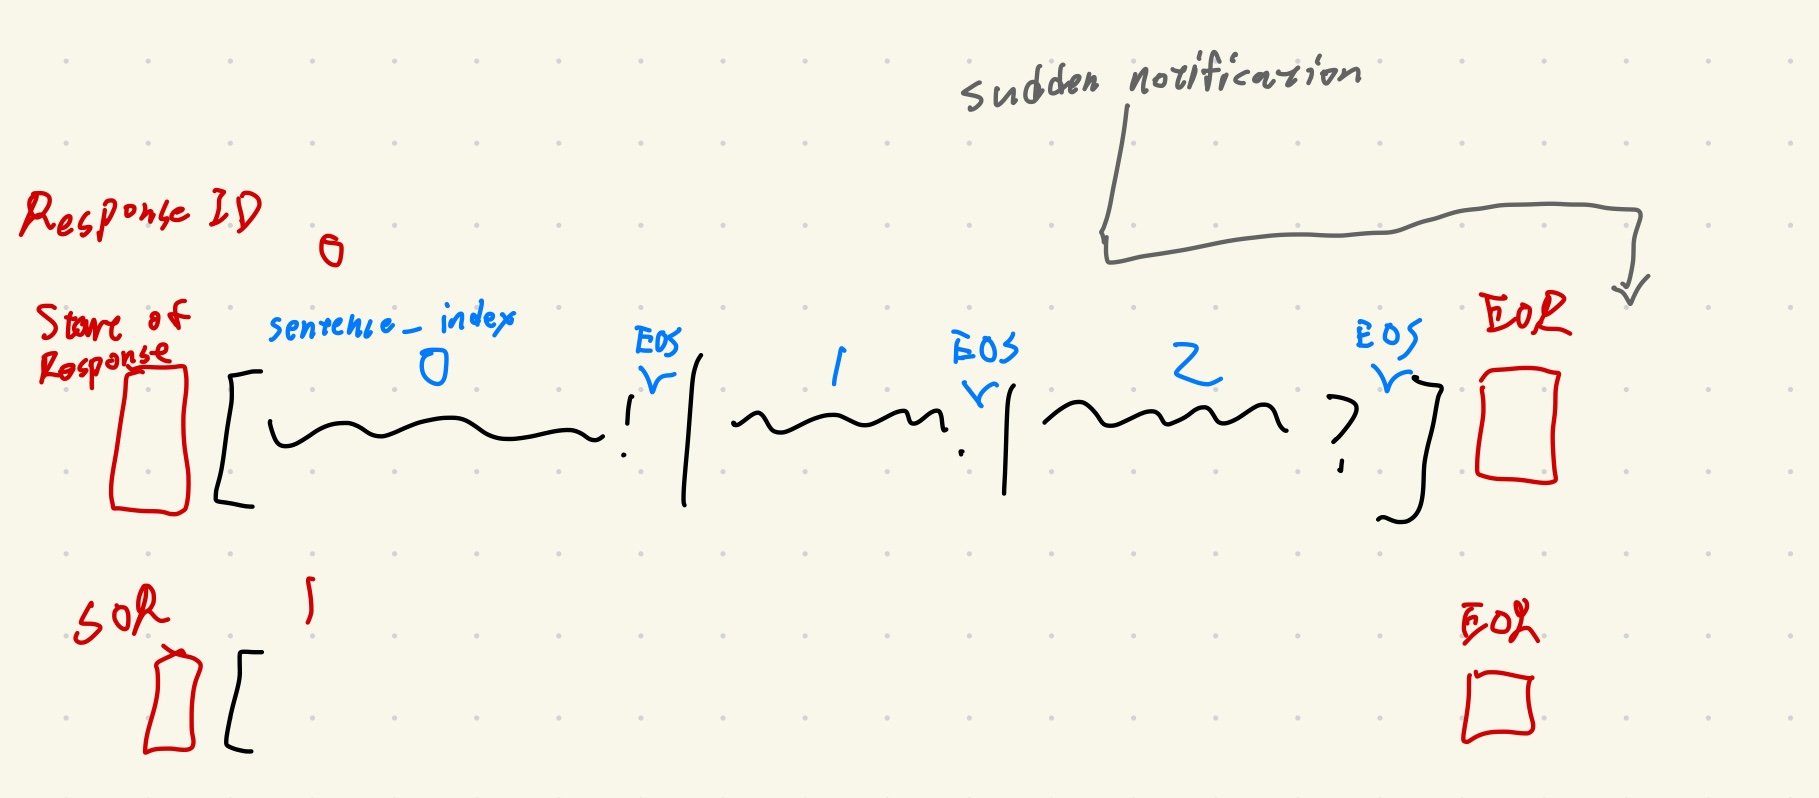 sudden notification
Response ID
0
Start of
Response
sentence_index
0
!
EOS
1
.
EOS
2
?
EOS
EOR
SOR
1
EOR